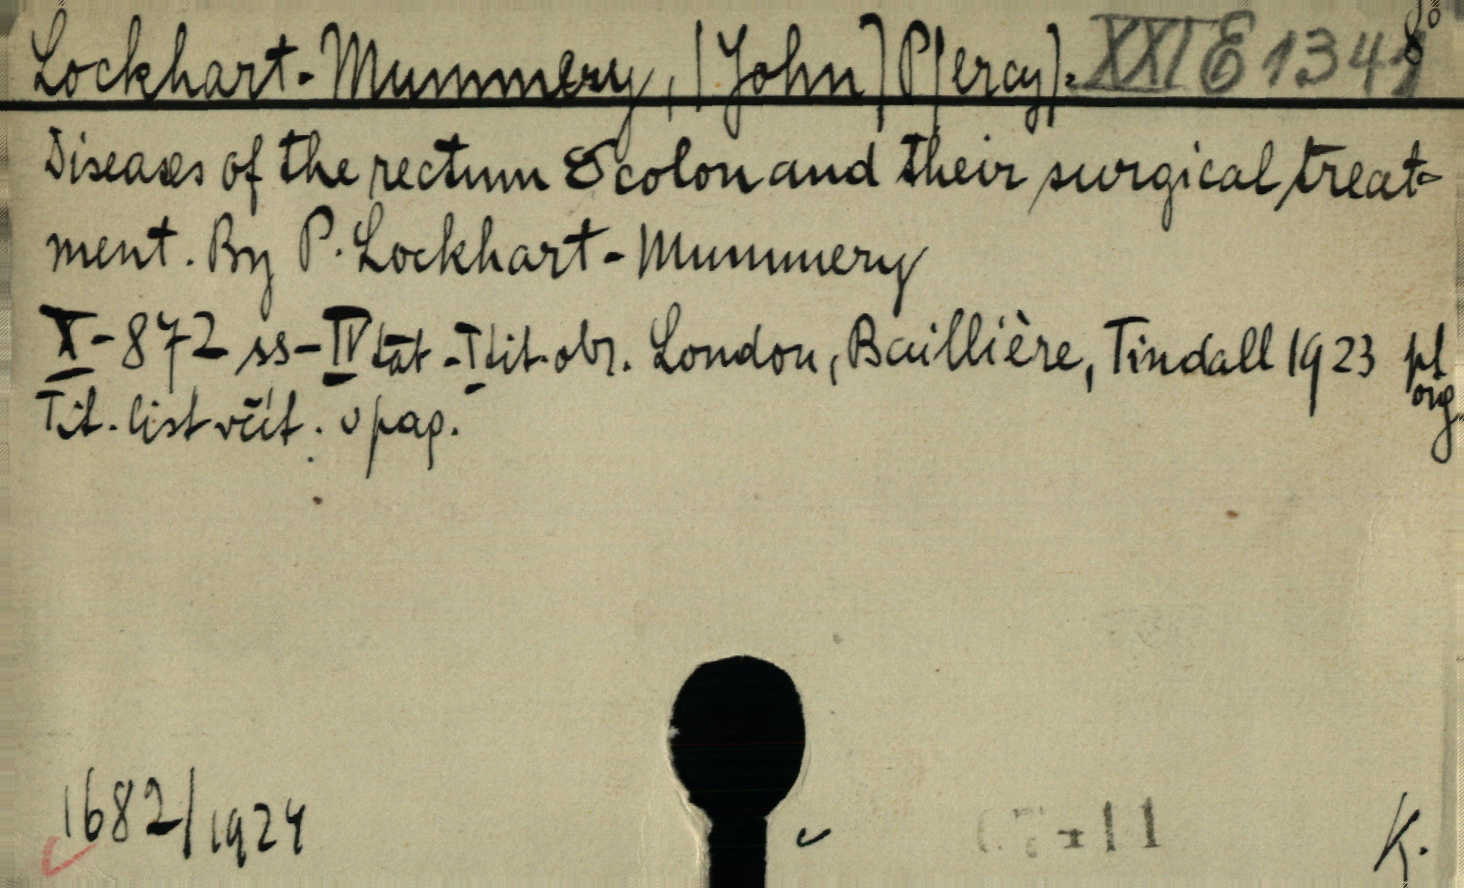 Lockhart-Mummery, [John] P[ercy]: XXI E 1341 8°
Diseases of the rectum & colon and their surgical treat-
ment. By P. Lockhart-Mummery
X-872 ss-IV tat-I tit. obr. London, Baillière, Tindall 1923 pl
org.
Tit. list včít. v pag.
1682/1924
K.